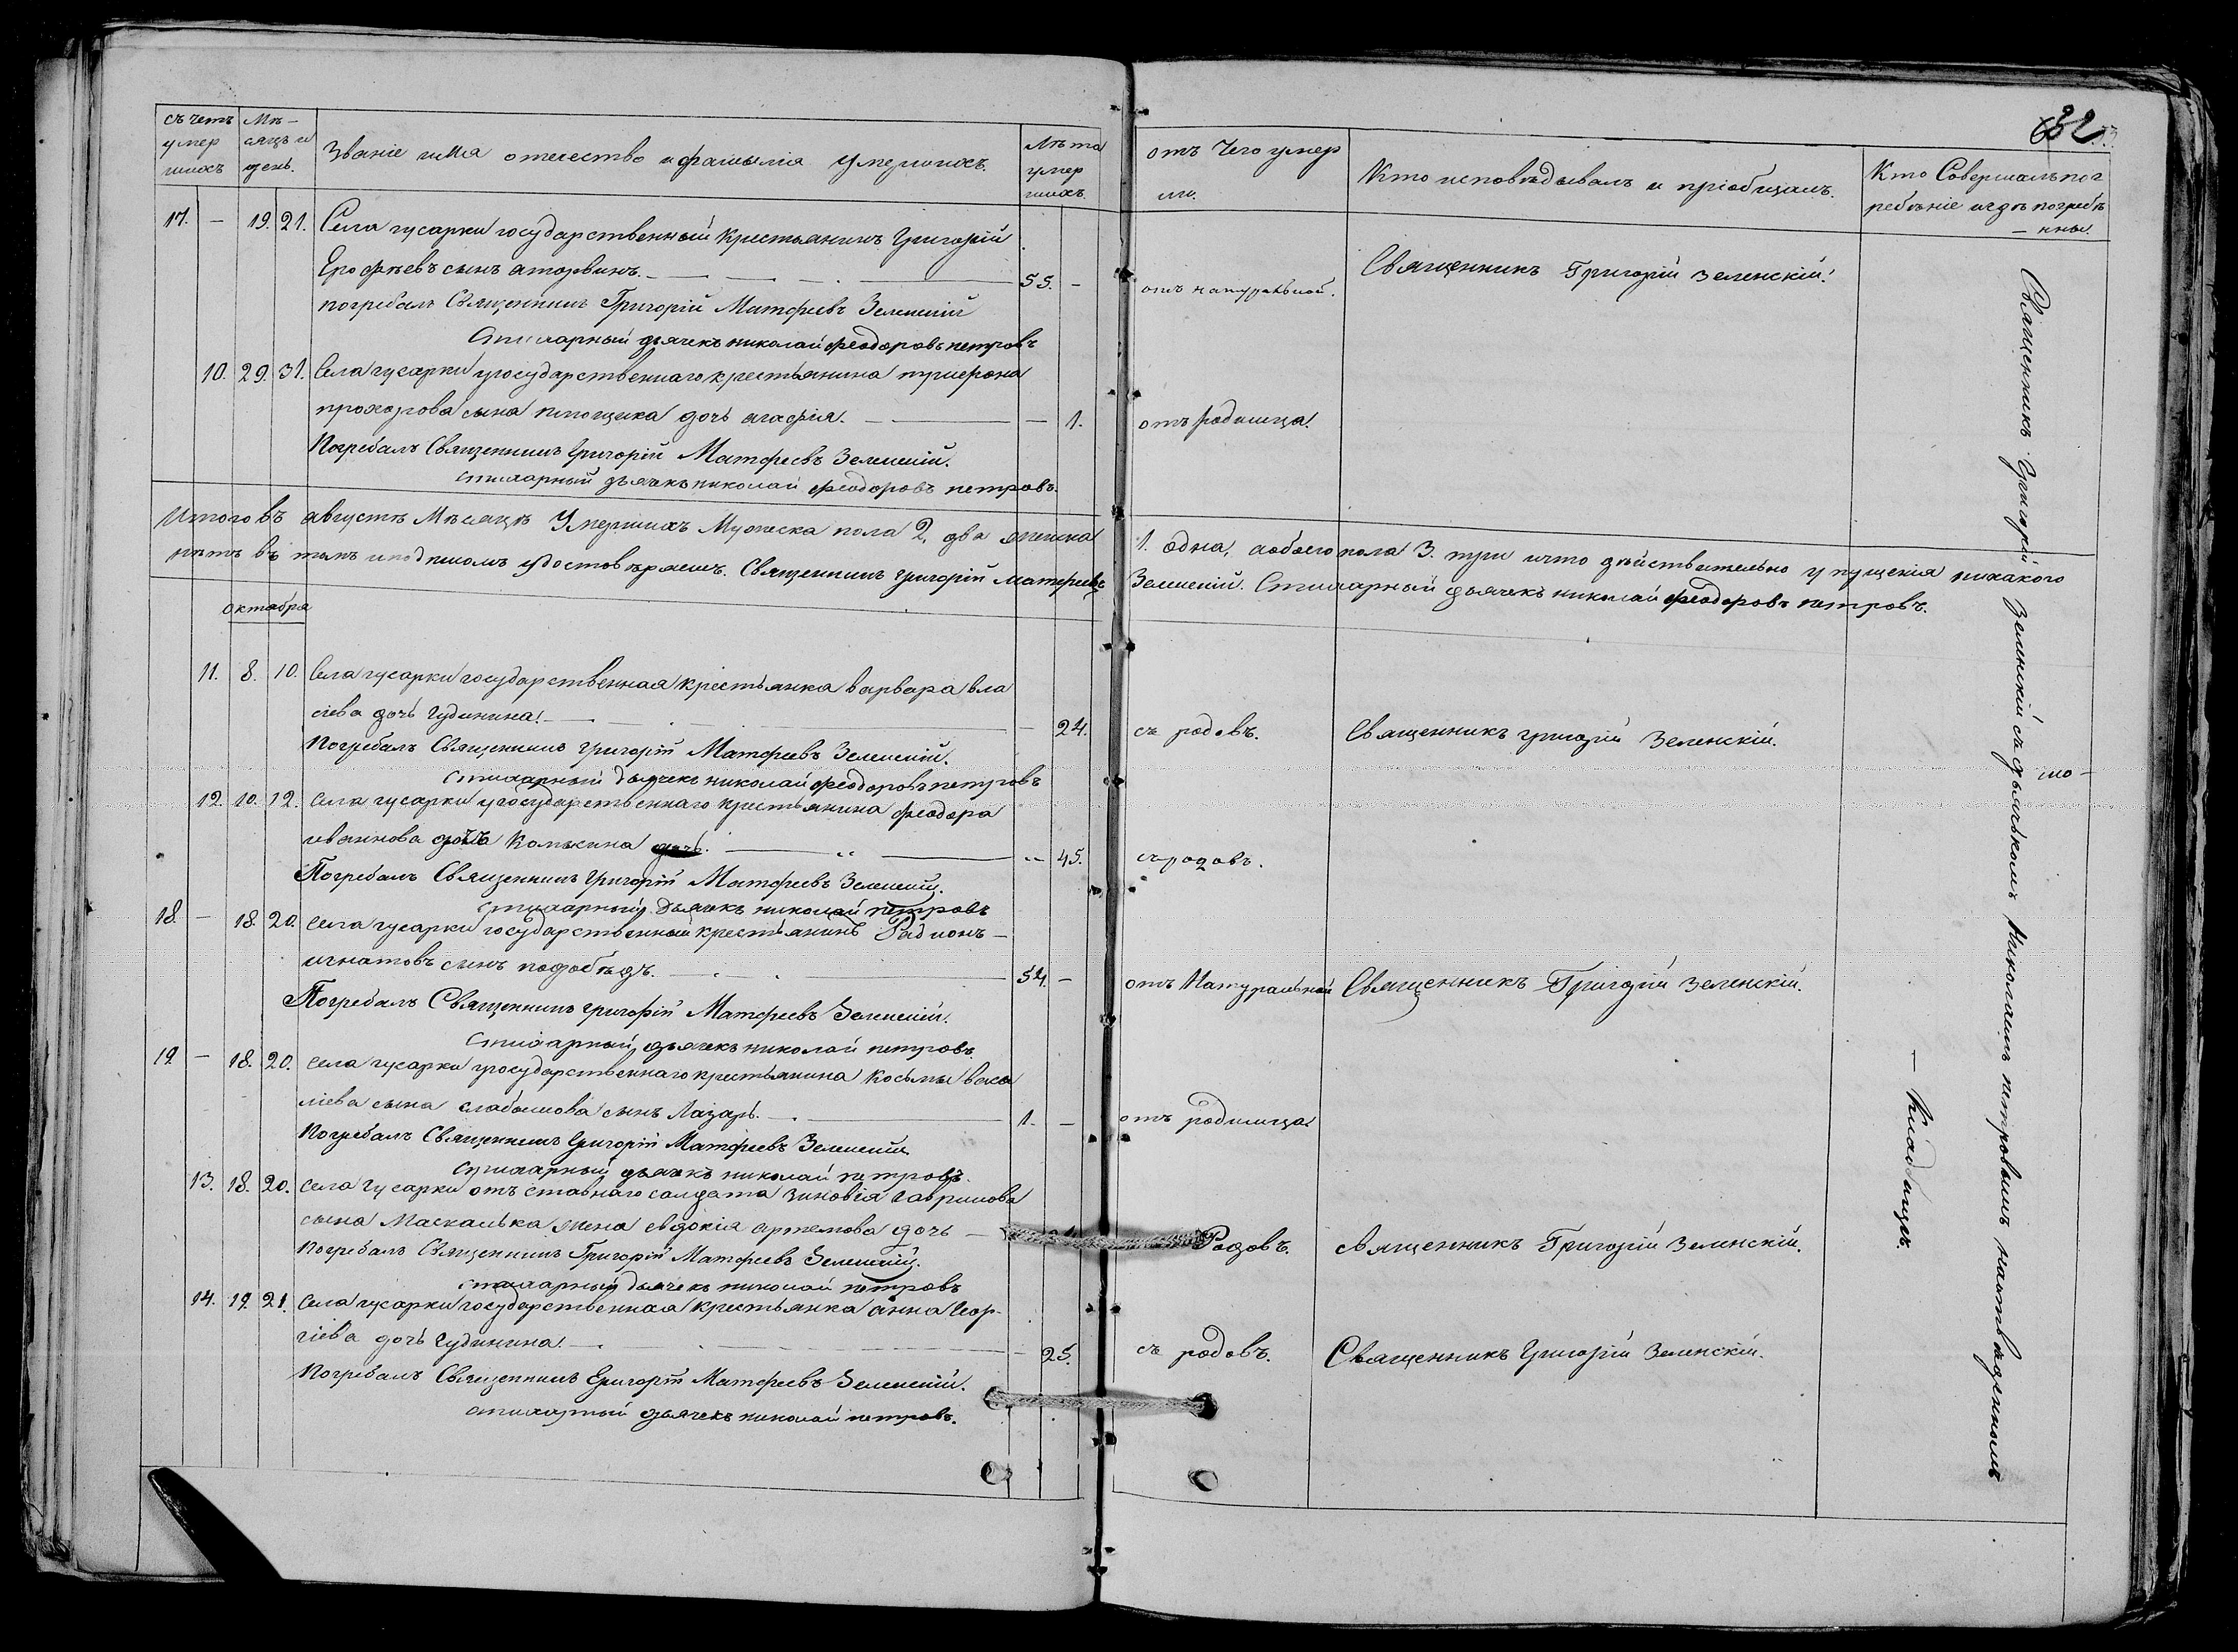 съчетъ умер шихъ
Мѣ- сяцъ и день.
Званіе имя отечество и фамылія умершихъ.
Лѣта умер шихъ
отъ Чего умер ли.
Кто исповѣдывалъ и пріобщалъ.
Кто Совершалъ пог ребѣніе и гдѣ погребѣ - нны.
32
17. – 19. 21. Села гусарки государственный крестьянинъ григорій
Ерофѣевъ сынъ 55. – отъ натуральной. Священникъ Григорій Зеленскій.
погребалъ Священникъ Григорій Матфеевъ Зеленскій
Стихарный дьячекъ николай феодоровъ петровъ
10. 29. 31. Села гусарки государственнаго крестьянина трифона
прохорова сына дочь агафія. – 1. отъ родимца.
Погребалъ Священникъ григорій Матфеевъ Зеленскій.
стихарный дьячекъ николай феодоровъ петровъ.
Итого въ августѣ Мѣсяцѣ Умершихъ Мужеска пола 2, два женска 1. одна, а обоего пола 3. три и что дѣйствительно упущенія никакого
нѣтъ въ томъ и подписомъ удостовѣряемъ. Священникъ григорій матфеевъ Зеленскій. Стихарный дьячекъ николай феодоровъ петровъ.
октабра
11. 8. 10. Села гусарки государственная крестьянка варвара вла
сіева дочь Гудинина. – 24. съ родовъ. Священникъ григорій Зеленскій.
Погребалъ Священникъ григорій Матфеевъ Зеленскій.
стихарный дьячекъ николай феодоровъ петровъ
12. 10. 12. Села гусарки государственнаго крестьянина феодора
иваннова Комысина – 45. съ родовъ.
Погребалъ Священникъ григорій Матфеевъ Зеленскій.
стихарный дьячекъ николай петровъ
18. – 18. 20. Села гусарки государственный крестьянинъ Радионъ –
игнатовъ сынъ 54. – отъ Натуральной Священникъ Григорій Зеленскій.
Погребалъ Священникъ григорій Матфеевъ Зеленскій.
Стихарный дьячекъ николай петровъ
19 – 18. 20. Села гусарки государственнаго крестьянина Косьмы васи
ліева сына слабомова сынъ Лазарь. 1. – отъ родимца
Погребалъ Священникъ григорій Матфеевъ Зеленскій.
Стихарный дьячекъ николай петровъ.
13. 18. 20. Села Гусарки отъставнаго салдата Зиновія гаврилова
сына Маскалька жена евдокія артемова дочь – Родовъ. священникъ Григорій Зеленскій.
Погребалъ Священникъ Григорій Матфеевъ Зеленскій.
стихарный дьячекъ николай петровъ
14. 19. 21. Села гусарки государственная крестьянка анна Геор-
гіева дочь Гудинина. – 25. съ родовъ. Священникъ Григорій Зеленскій.
Погребалъ Священникъ Григорій Матфеевъ Зеленскій.
стихарный дьячекъ николай петровъ.
Священникъ Григорій Зеленскій съ дьячькомъ Николаемъ петровымъ на отвѣденномъ
– Кладбищѣ.